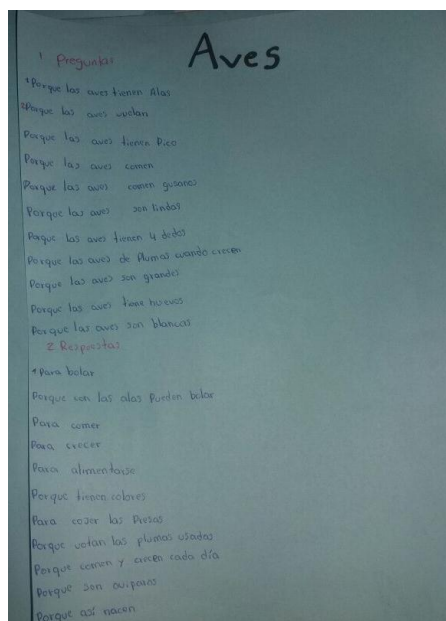 Aves
1 Preguntas
*Porque las aves tienen Alas
*Porque las aves vuelan
Porque las aves tienen Pico
Porque las aves comen
Porque las aves comen gusanos
Porque las aves son lindas
Porque las aves tienen 4 dedos
Porque las aves de Plumas cuando crecen
Porque las aves son grandes
Porque las aves tiene huevos
Porque las aves son blancas
2 Respuestas
*Para bolar
Porque con las alas Pueden bolar
Para comer
Para crecer
Para alimentarse
Porque tienen colores
Para coser las Presas
Porque votan las plumas usadas
Porque comen y crecen cada día
Porque son oviparos
Porque así nacen